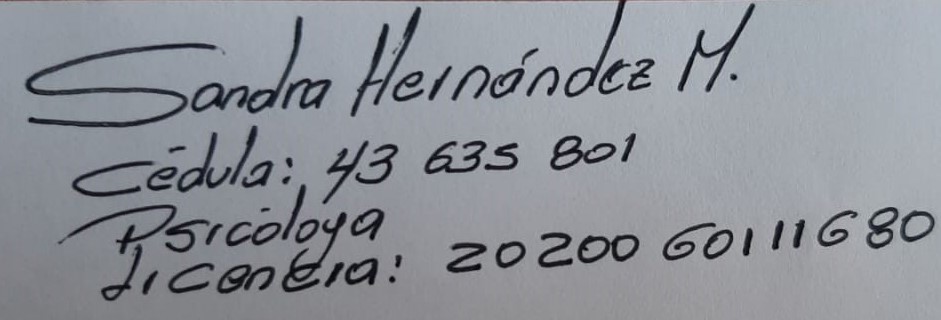 Sandra Hernández M.
Cédula: 43 635 801
Psicóloga
Licencia: 20200 60111680